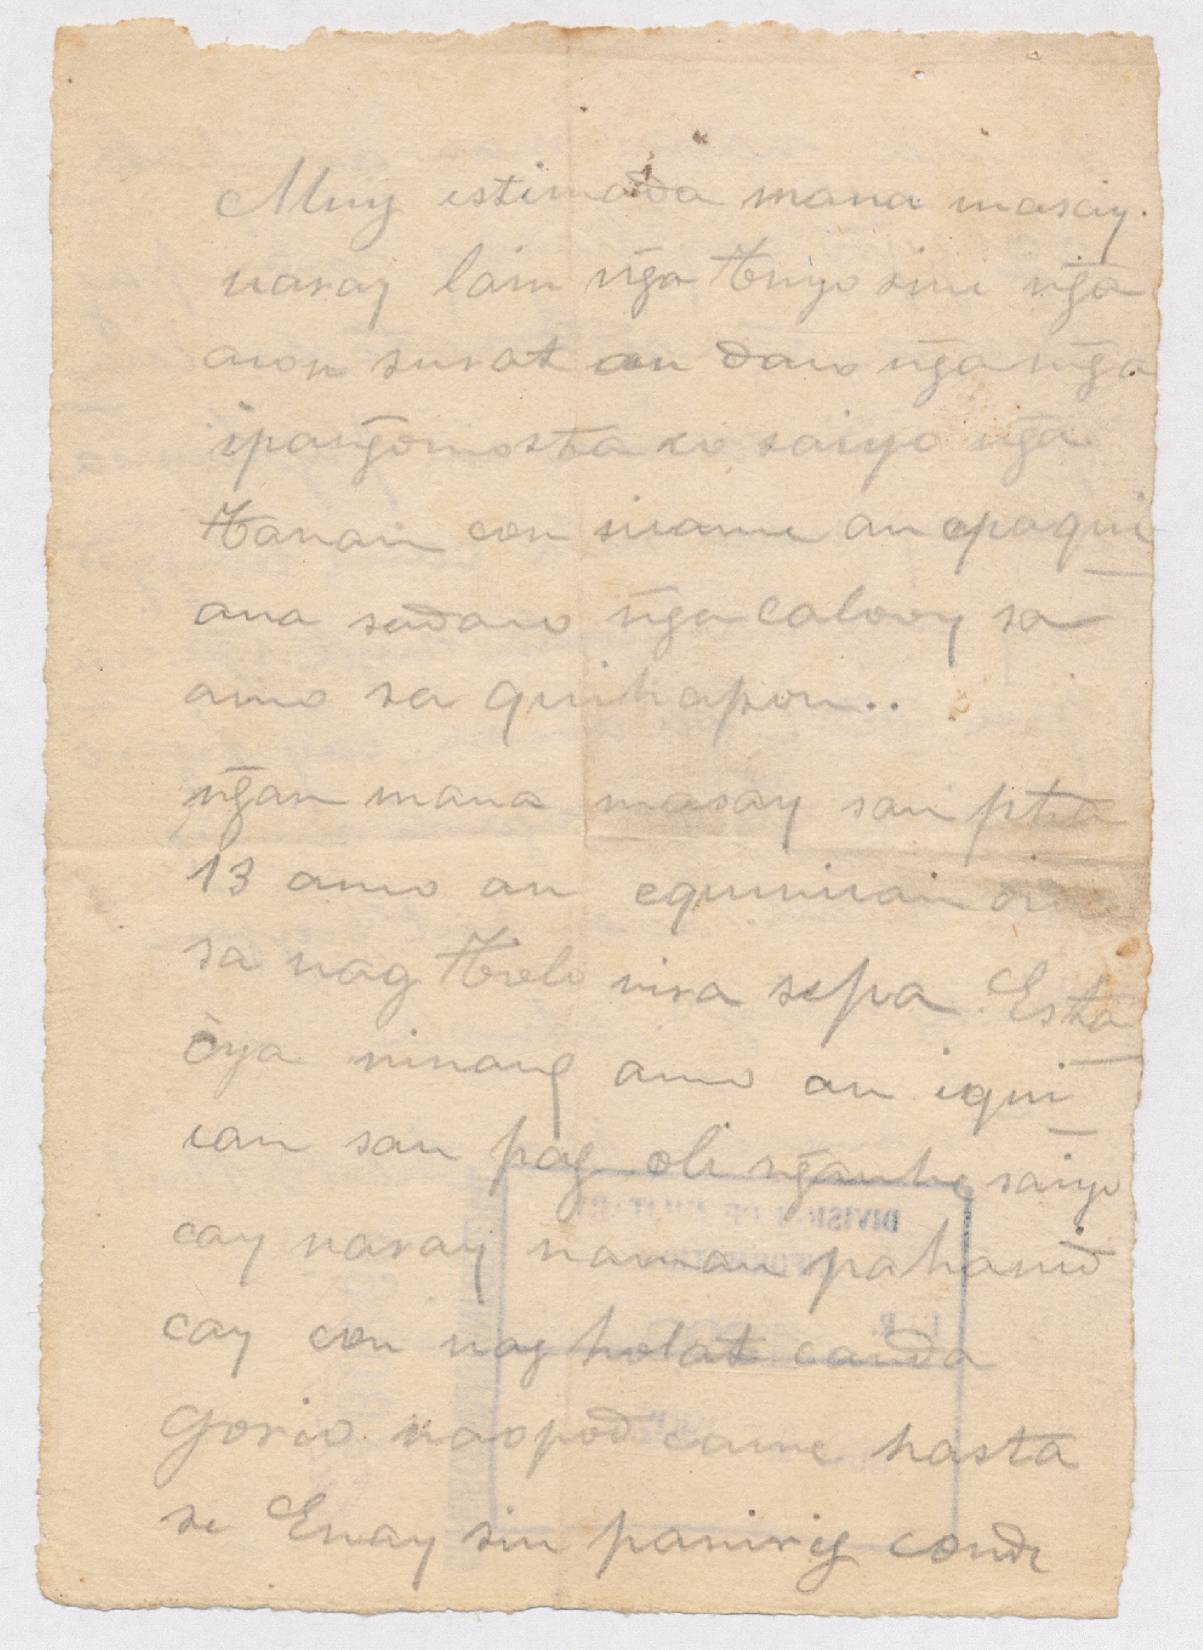 Muy estimada mana masay.
uaray lain nga tuyo sini nga
acon surat an daro nga nga
ipangomosta co saiyo nga
tanan con iname an apaqui
ana sadaro nga calooy sa
amo sa quinhapon..
ngan mana masay san ptsa
13 amo an
sa nag sepa Esta
oya ninang amo an iqui
ian san pag oli nganhe saiyo
cay uaray naman pahanud
cay con nag holat canda
Gorio naopod came hasta
se Enay sin panirig conde
DIVISION DE MILITAR